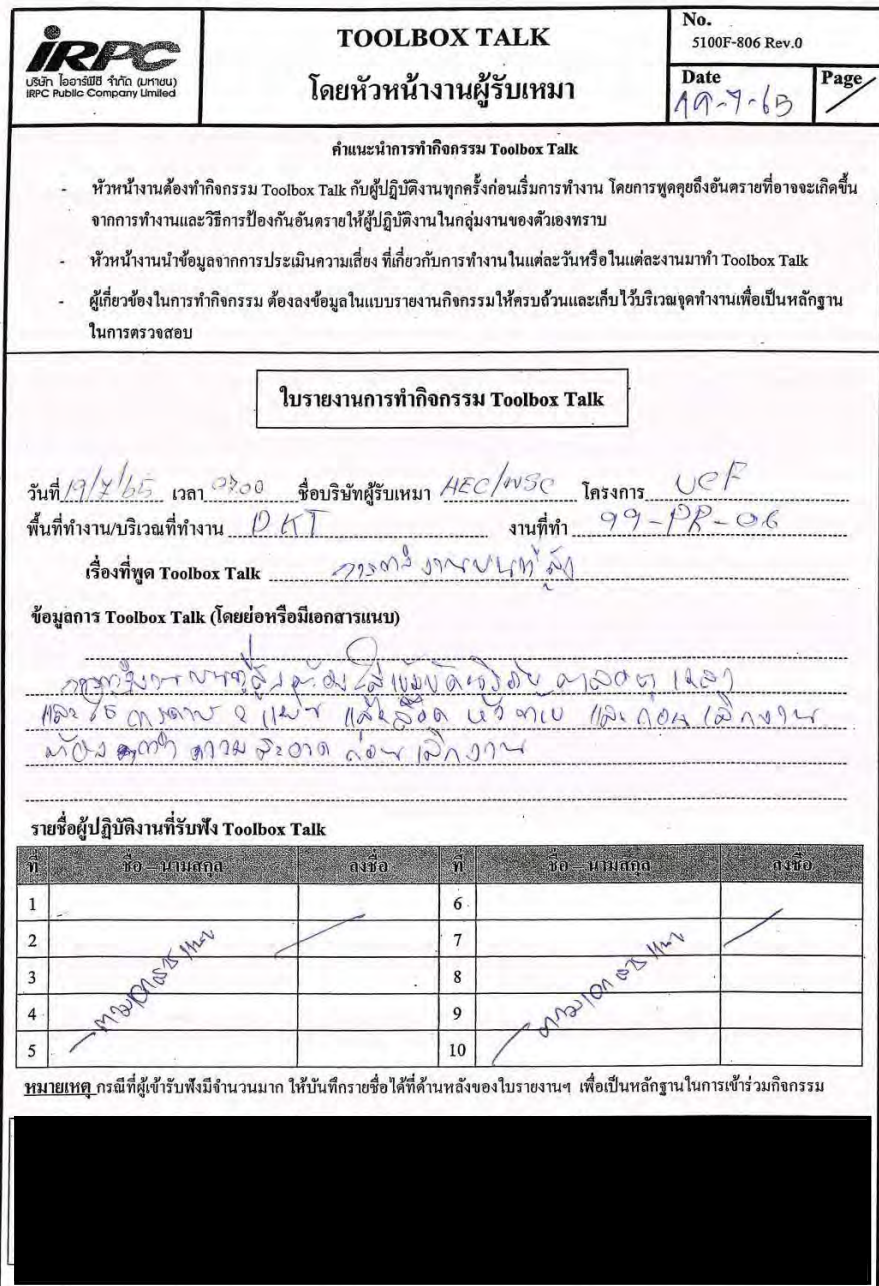 IRPC
บริษัท ไออาร์พีซี จำกัด (มหาชน)
IRPC Public Company Limited
TOOLBOX TALK
โดยหัวหน้างานผู้รับเหมา
No.
5100F-806 Rev.0
Date
Page
19-7-65
คำแนะนำการทำกิจกรรม Toolbox Talk
- หัวหน้างานต้องทำกิจกรรม Toolbox Talk กับผู้ปฏิบัติงานทุกครั้งก่อนเริ่มการทำงาน โดยการพูดคุยถึงอันตรายที่อาจจะเกิดขึ้น
จากการทำงานและวิธีการป้องกันอันตรายให้ผู้ปฏิบัติงานในกลุ่มงานของตัวเองทราบ
- หัวหน้างานนำข้อมูลจากการประเมินความเสี่ยง ที่เกี่ยวกับการทำงานในแต่ละวันหรือในแต่ละงานมาทำ Toolbox Talk
- ผู้เกี่ยวข้องในการทำกิจกรรม ต้องลงข้อมูลในแบบรายงานกิจกรรมให้ครบถ้วนและเก็บไว้บริเวณจุดทำงานเพื่อเป็นหลักฐาน
ในการตรวจสอบ
ใบรายงานการทำกิจกรรม Toolbox Talk
วันที่ 19/7/65 เวลา 0700 ชื่อบริษัทผู้รับเหมา AEC/WSC โครงการ UCF
พื้นที่ทำงาน/บริเวณที่ทำงาน DKT งานที่ทำ 99-PR-06
เรื่องที่พูด Toolbox Talk การทำงานบนที่สูง
ข้อมูลการ Toolbox Talk (โดยย่อหรือมีเอกสารแนบ)
การทำงานบนที่สูงต้องใส่เข็มขัดนิรภัย ตลอดเวลา
และ 2 และก่อนเลิกงาน
ต้องทำความสะอาดก่อนเลิกงาน
รายชื่อผู้ปฏิบัติงานที่รับฟัง Toolbox Talk
ที่ ชื่อ – นามสกุล ลงชื่อ ที่ ชื่อ – นามสกุล ลงชื่อ
1 6
2 7
3 8
4 9
5 10
ตามเอกสารแนบ
ตามเอกสารแนบ
หมายเหตุ กรณีที่ผู้เข้ารับฟังมีจำนวนมาก ให้บันทึกรายชื่อได้ที่ด้านหลังของใบรายงานฯ เพื่อเป็นหลักฐานในการเข้าร่วมกิจกรรม